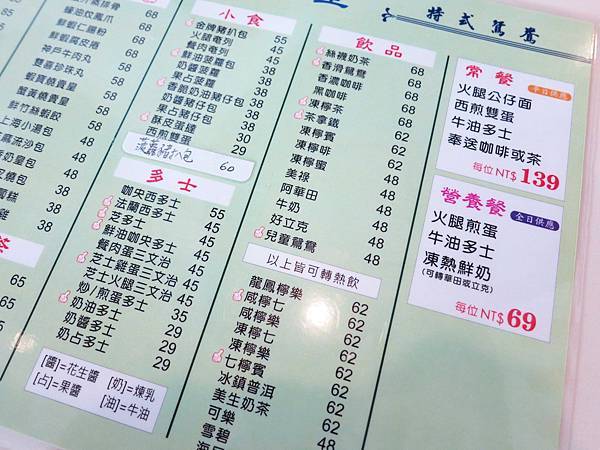 特式鴛鴦
68
辣油炆鳳爪 65
鮮蝦仁腸粉 68
鮮蝦腐皮捲
神戶牛肉丸
雙喜珍珠丸 58
蝦寶燒賣皇 58
蟹黃燒賣皇 58
鮮竹絲蝦餃 58
上海小湯包 58
38
48
38
48
48
38
小食
金牌豬扒包 55
火腿奄列 45
餐肉奄列 45
鮮油菠蘿包 35
奶醬菠蘿 35
果占菠蘿 35
香脆奶油豬仔包 35
奶醬豬仔包 38
果占豬仔包 38
酥皮蛋撻 30
西煎雙蛋 29
菠蘿豬扒包 60
多士
咖央西多士 55
法蘭西多士 45
芝多士 45
鮮油咖央多士 45
餐肉蛋三文治 45
芝士雞蛋三文治 45
芝士火腿三文治 45
炒/煎蛋多士 35
奶油多士 29
奶醬多士 29
奶占多士 29
[醬]=花生醬 [奶]=煉乳
[占]=果醬 [油]=牛油
飲品
絲襪奶茶 68
香滑鴛鴦 68
香濃咖啡 68
黑咖啡 68
凍檸茶 68
茶拿鐵 62
凍檸賓 62
凍檸啡 62
凍檸蜜 62
美祿 48
阿華田 48
牛奶 48
好立克 48
兒童鴛鴦 48
以上皆可轉熱飲
龍鳳檸樂 62
咸檸七 62
咸檸樂 62
凍檸七 62
凍檸樂 62
七檸賓 62
冰鎮普洱 62
美生奶茶 62
可樂 48
雪碧 48
常餐 平日供應
火腿公仔面
西煎雙蛋
牛油多士
奉送咖啡或茶
每位 NT$ 139
營養餐 全日供應
火腿煎蛋
牛油多士
凍熱鮮奶
(可轉華田或立克)
每位 NT$ 69